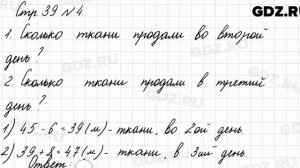 Стр. 39 № 4.
GDZ.RU
1. Сколько ткани продали во второй
день?
2. Сколько ткани продали в третий
день?
1) 45 - 6 = 39 (м) - ткани, во 2ой день.
2) 39 + 8 = 47 (м) - ткани, в 3ий день.
Ответ: